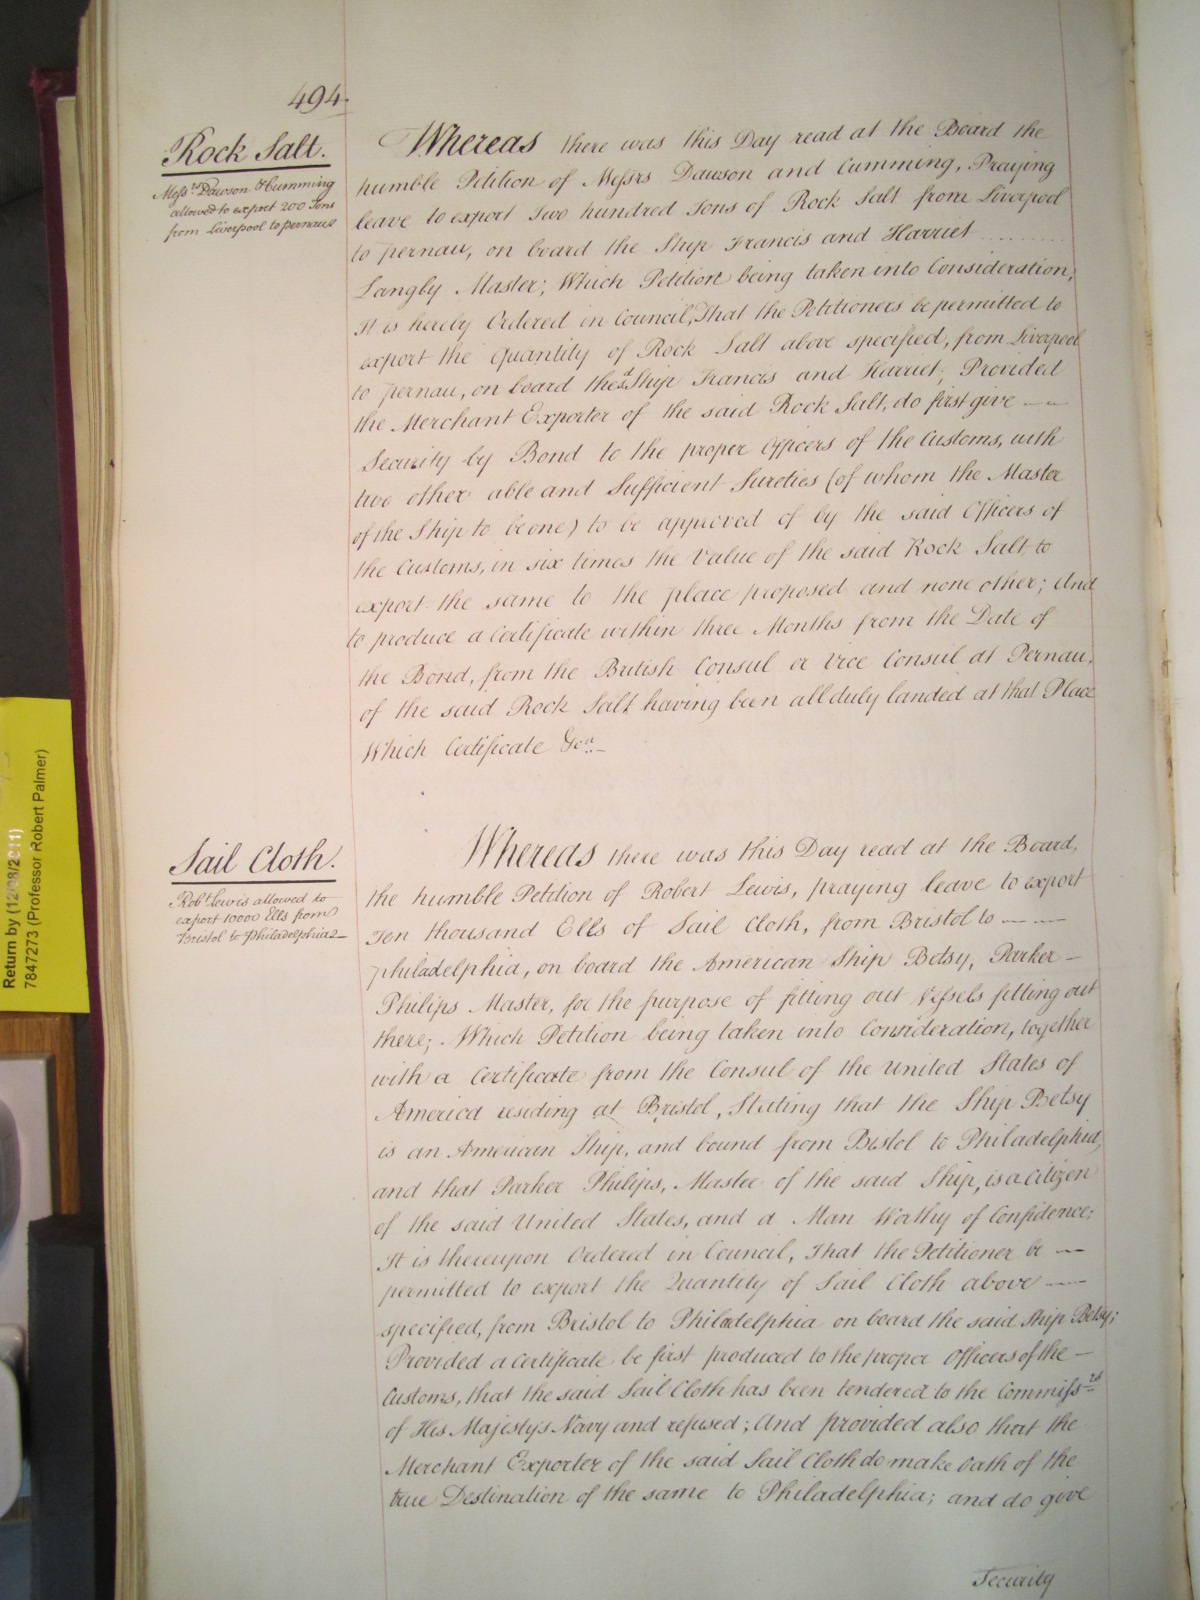 494.
Rock Salt.
Messrs. Dawson & Cumming
allowed to export 200 Tons
from Liverpool to Pernau
Whereas there was this Day read at the Board the
humble Petition of Messrs Dawson and Cumming, Praying
leave to export Two hundred Tons of Rock Salt from Liverpool
to Pernau, on board the Ship Francis and Harriet
Langby Master; Which Petition being taken into Consideration,
It is hereby Ordered in Council, That the Petitioners be permitted to
export the quantity of Rock Salt above specified, from Liverpool
to Pernau, on board the sd. Ship Francis and Harriet; Provided
the Merchant Exporter of the said Rock Salt, do first give
Security by Bond to the proper Officers of the Customs, with
two other able and Sufficient Sureties (of whom the Master
of the Ship to be one) to be approved of by the said Officers of
the Customs, in six times the Value of the said Rock Salt, to
export the same to the place proposed and none other; And
to produce a Certificate within three Months from the Date of
the Bond, from the British Consul or Vice Consul at Pernau,
of the said Rock Salt having been all duly landed at that Place
Which Certificate &ca.
Sail Cloth.
Robt. Lewis allowed to
export 10000 Ells from
Bristol to Philadelphia
Whereas there was this Day read at the Board,
the humble Petition of Robert Lewis, praying leave to export
Ten thousand Ells of Sail Cloth, from Bristol to
Philadelphia, on board the American Ship Betsy, Parker
Philips Master, for the purpose of fitting out Vessels fitting out
there; Which Petition being taken into Consideration, together
with a Certificate from the Consul of the United States of
America residing at Bristol, Stating that the Ship Betsy
is an American Ship, and bound from Bistol to Philadelphia,
and that Parker Philips, Master of the said Ship, is a Citizen
of the said United States, and a Man Worthy of Confidence;
It is thereupon Ordered in Council, That the Petitioner be
permitted to export the Quantity of Sail Cloth above
specified, from Bristol to Philadelphia on board the said Ship Betsy;
Provided a Certificate be first produced to the proper Officers of the
Customs, that the said Sail Cloth has been tendered to the Commissrs.
of His Majestys Navy and refused; And provided also that the
Merchant Exporter of the said Sail Cloth do make Oath of the
true Destination of the same to Philadelphia; and do give
Security
Return by (12/08/2011)
7847273 (Professor Robert Palmer)